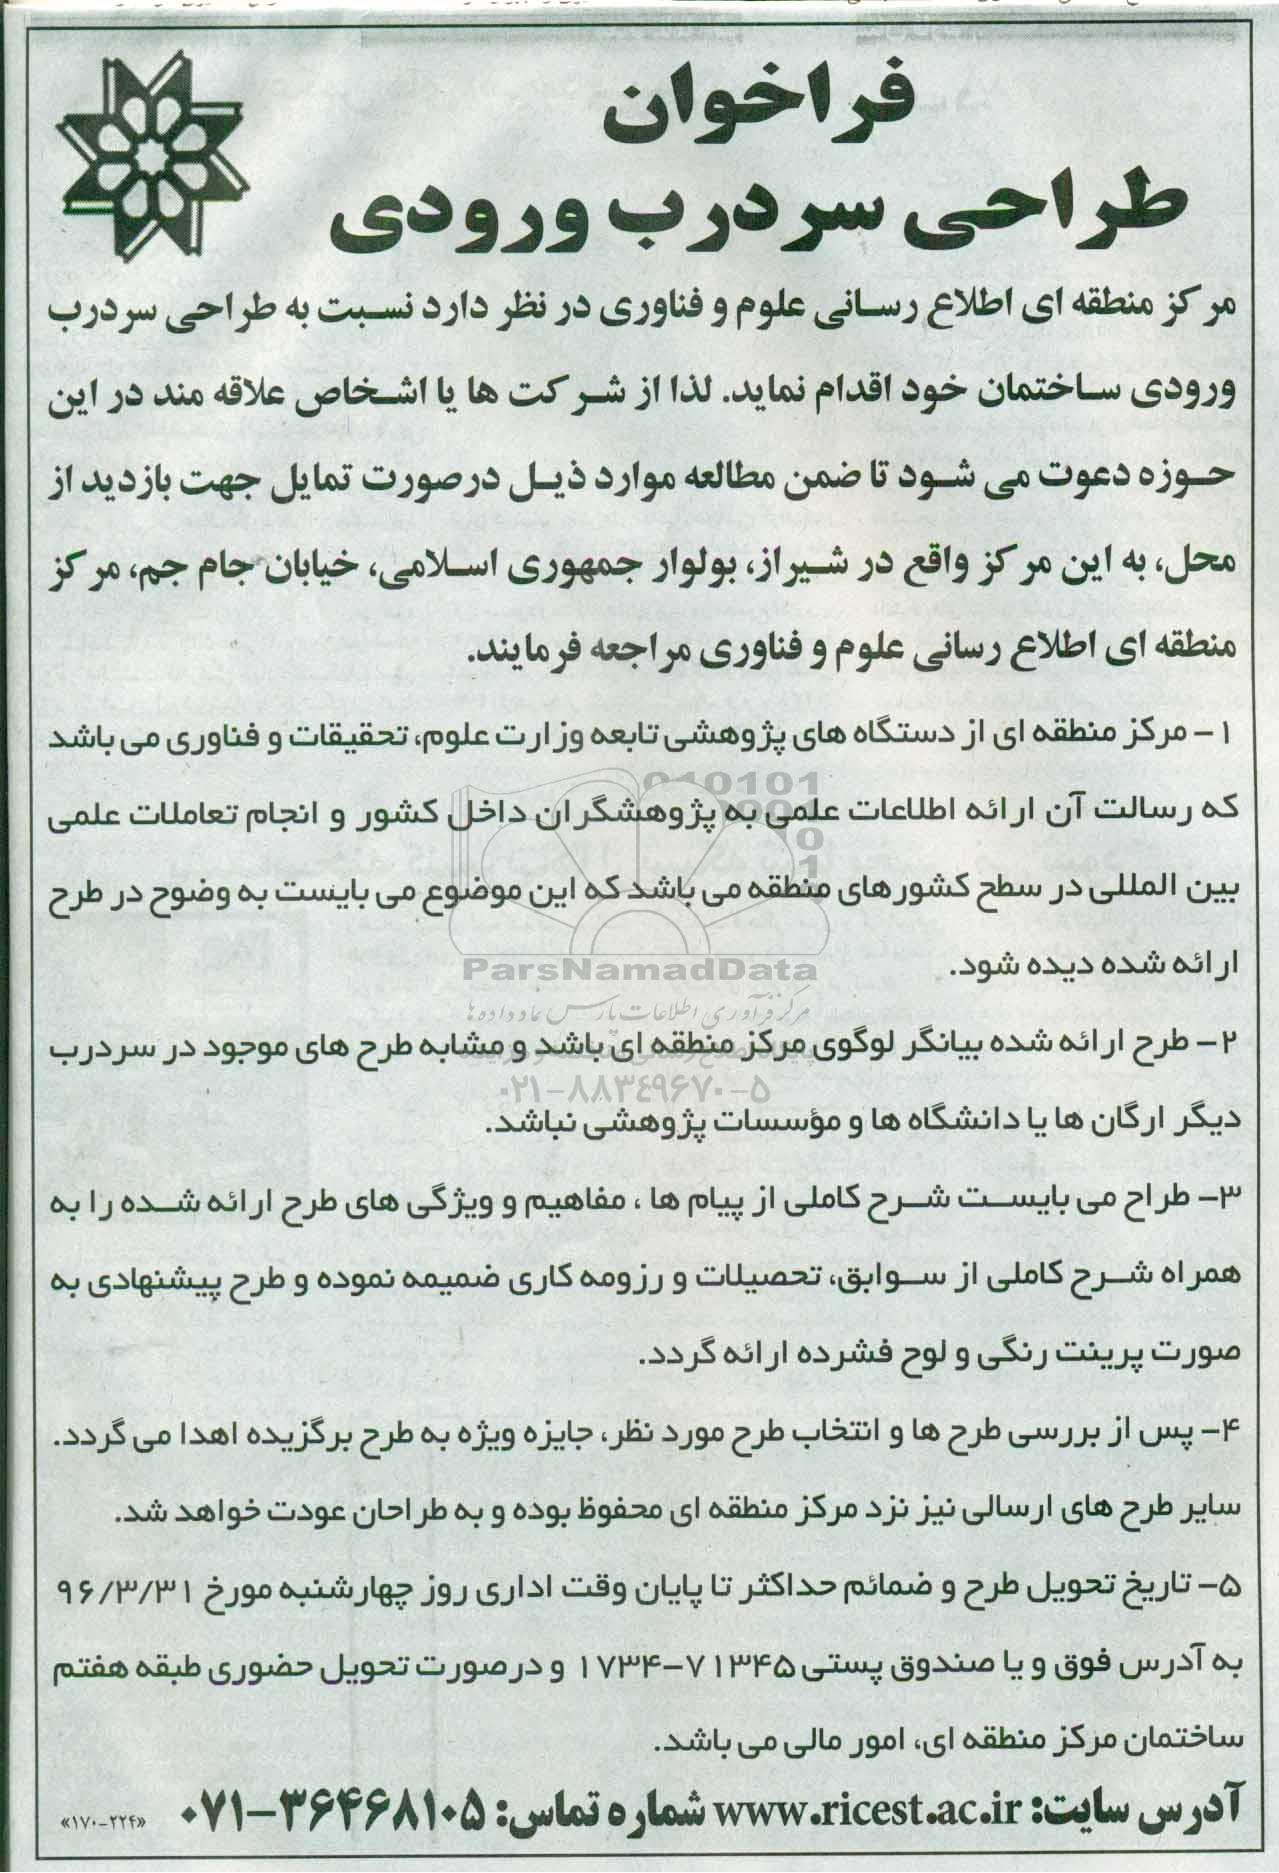 فراخوان
طراحی سردرب ورودی
مرکز منطقه ای اطلاع رسانی علوم و فناوری در نظر دارد نسبت به طراحی سردرب
ورودی ساختمان خود اقدام نماید. لذا از شرکت ها یا اشخاص علاقه مند در این
حوزه دعوت می شود تا ضمن مطالعه موارد ذیل درصورت تمایل جهت بازدید از
محل، به این مرکز واقع در شیراز، بولوار جمهوری اسلامی، خیابان جام جم، مرکز
منطقه ای اطلاع رسانی علوم و فناوری مراجعه فرمایند.
۱- مرکز منطقه ای از دستگاه های پژوهشی تابعه وزارت علوم، تحقیقات و فناوری می باشد
که رسالت آن ارائه اطلاعات علمی به پژوهشگران داخل کشور و انجام تعاملات علمی
بین المللی در سطح کشورهای منطقه می باشد که این موضوع می بایست به وضوح در طرح
ارائه شده دیده شود.
ParsNamadData
مرکز فرآوری اطلاعات پارس نماد داده ها
۲- طرح ارائه شده بیانگر لوگوی مرکز منطقه ای باشد و مشابه طرح های موجود در سردرب
۰۲۱-۸۸۳۴۹۶۷۰-۵
دیگر ارگان ها یا دانشگاه ها و مؤسسات پژوهشی نباشد.
۳- طراح می بایست شرح کاملی از پیام ها ، مفاهیم و ویژگی های طرح ارائه شده را به
همراه شرح کاملی از سوابق، تحصیلات و رزومه کاری ضمیمه نموده و طرح پیشنهادی به
صورت پرینت رنگی و لوح فشرده ارائه گردد.
۴- پس از بررسی طرح ها و انتخاب طرح مورد نظر، جایزه ویژه به طرح برگزیده اهدا می گردد.
سایر طرح های ارسالی نیز نزد مرکز منطقه ای محفوظ بوده و به طراحان عودت خواهد شد.
۵- تاریخ تحویل طرح و ضمائم حداکثر تا پایان وقت اداری روز چهارشنبه مورخ ۹۶/۳/۳۱
به آدرس فوق و یا صندوق پستی ۷۱۳۴۵-۱۷۳۴ و درصورت تحویل حضوری طبقه هفتم
ساختمان مرکز منطقه ای، امور مالی می باشد.
آدرس سایت: www.ricest.ac.ir شماره تماس: ۳۶۴۶۸۱۰۵-۰۷۱ «۱۷۰-۲۲۴»